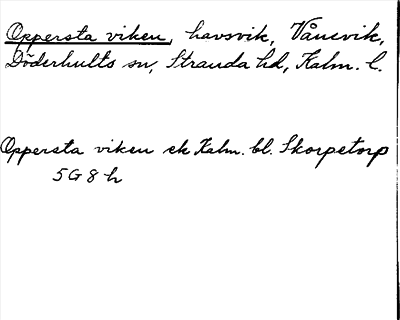 Oppersta viken, havsvik, Vånevik,
Döderhults sn, Stranda hd, Kalm. l.
Oppersta viken ek Kalm. bl. Skorpetorp
5G8h